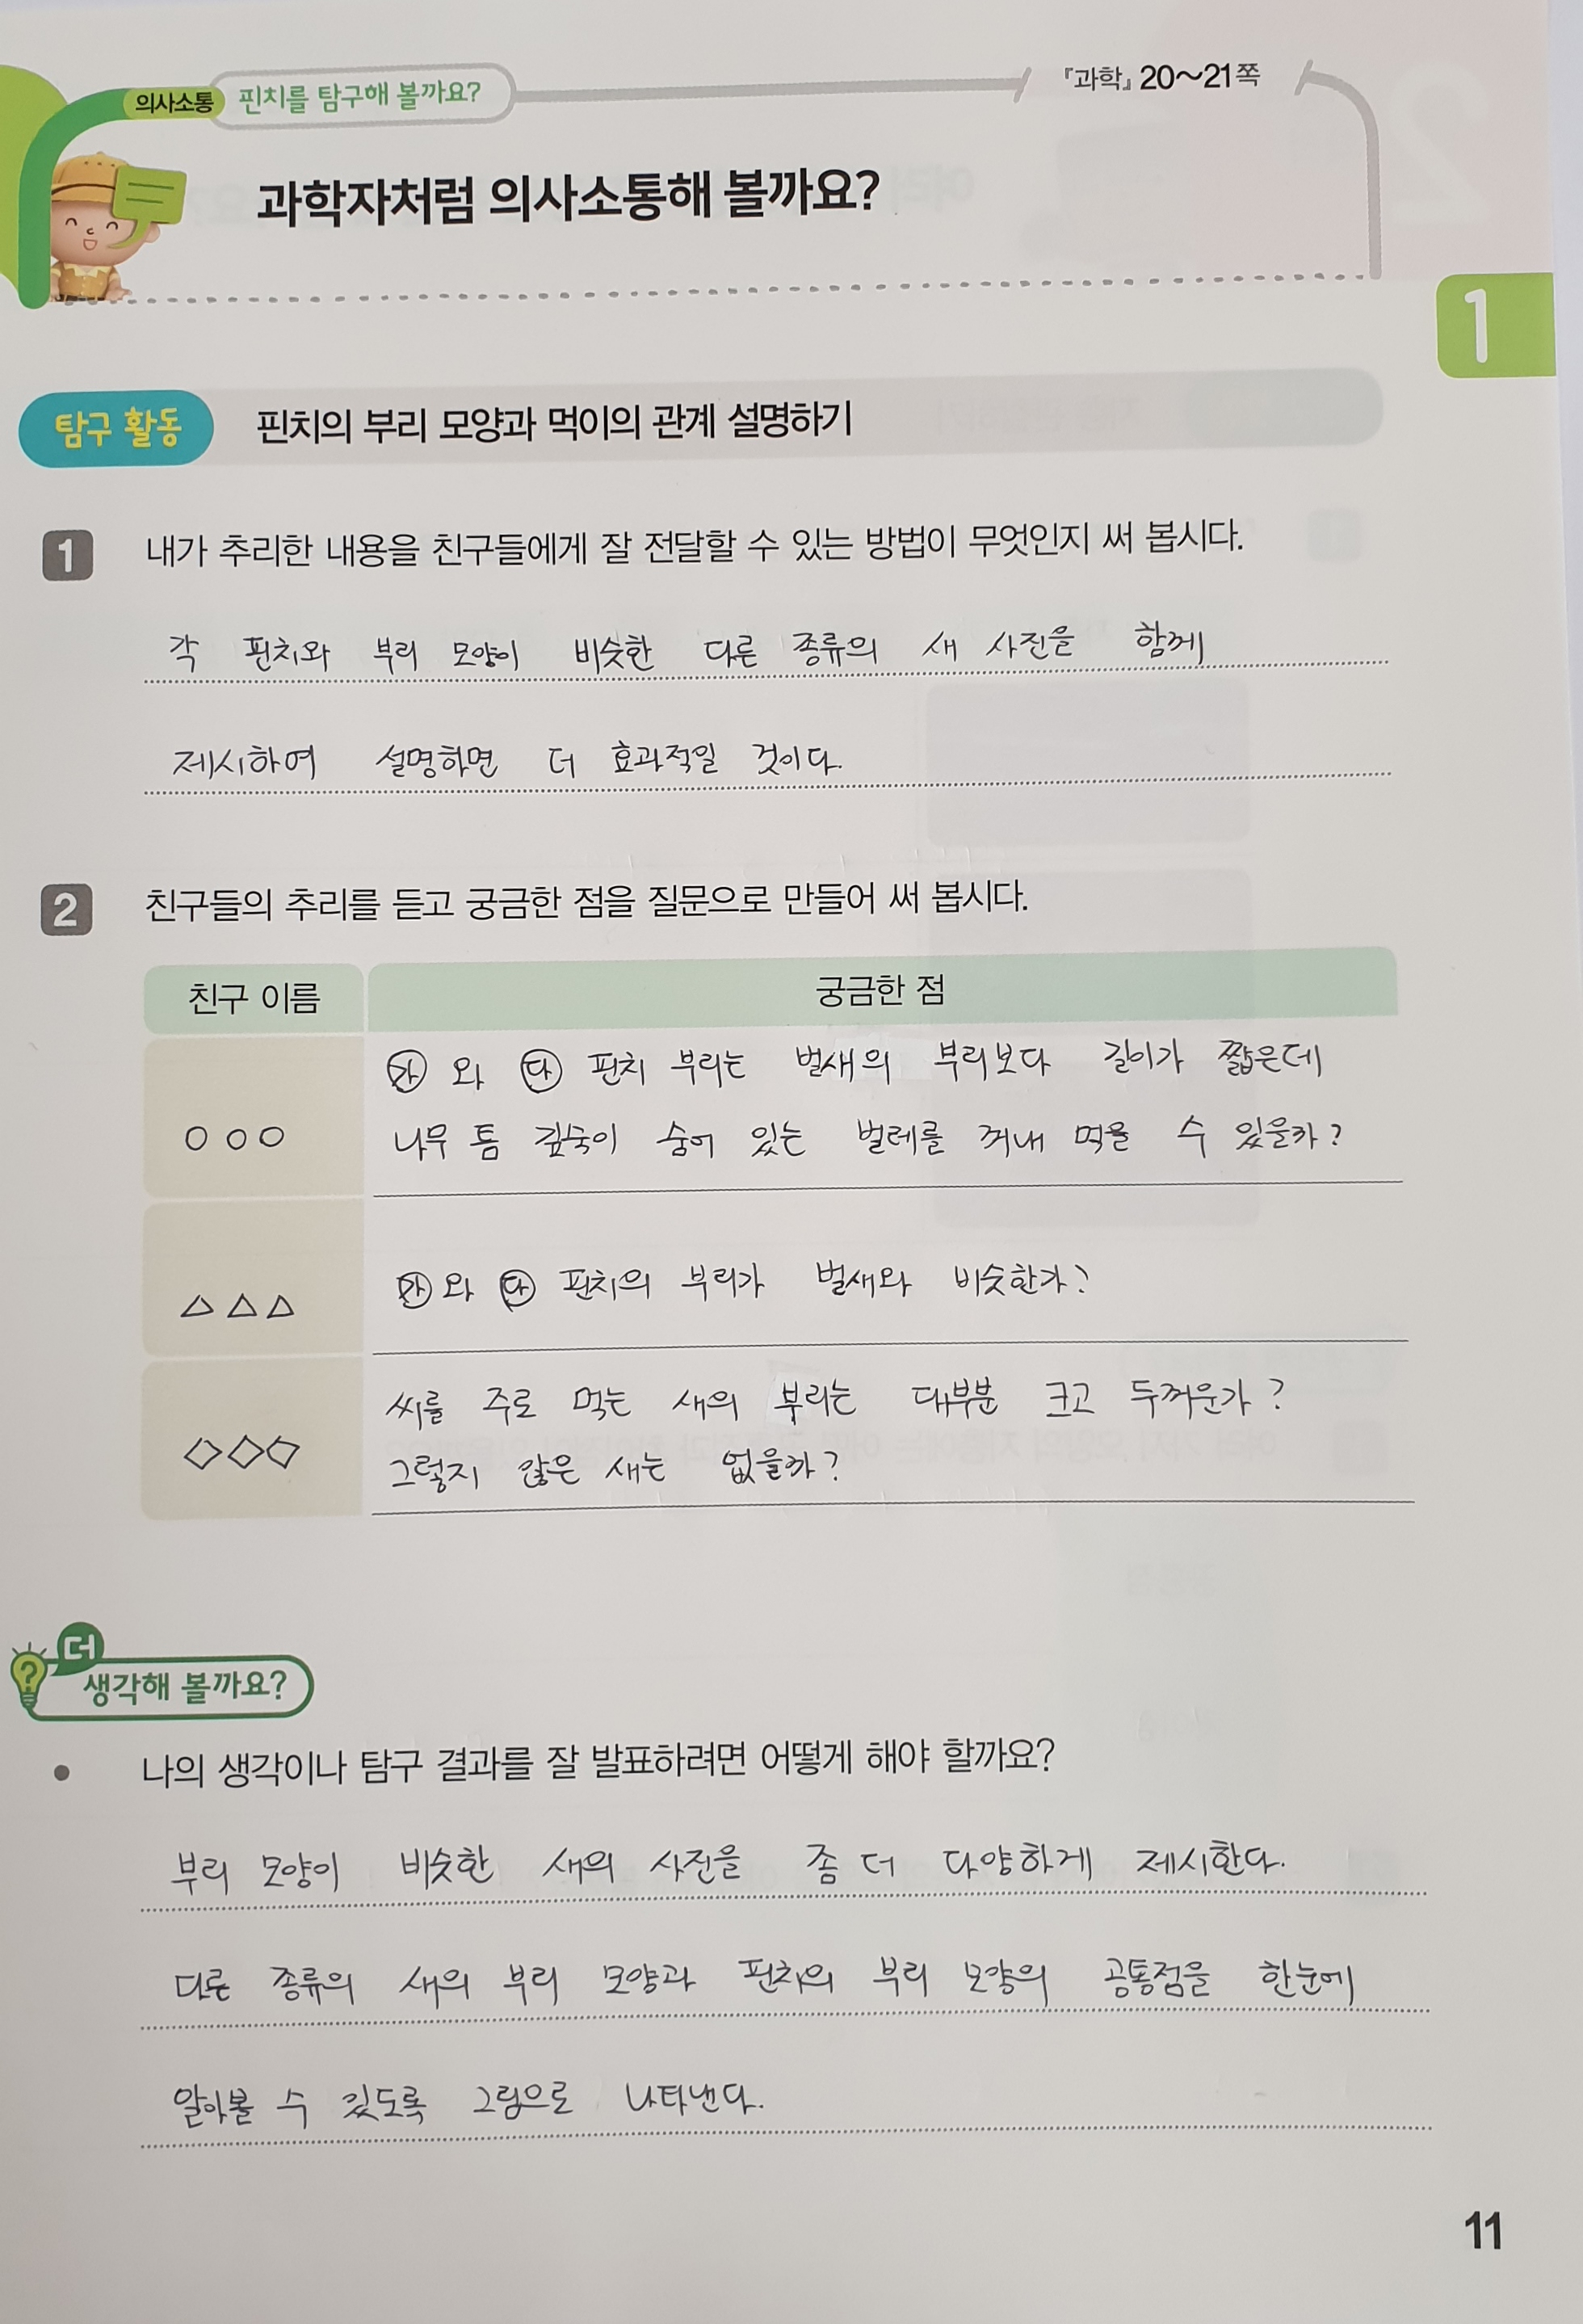 의사소통 핀치를 탐구해 볼까요? 『과학』 20~21쪽
과학자처럼 의사소통해 볼까요?
1
탐구 활동 핀치의 부리 모양과 먹이의 관계 설명하기
1 내가 추리한 내용을 친구들에게 잘 전달할 수 있는 방법이 무엇인지 써 봅시다.
각 핀치와 부리 모양이 비슷한 다른 종류의 새 사진을 함께
제시하여 설명하면 더 효과적일 것이다.
2 친구들의 추리를 듣고 궁금한 점을 질문으로 만들어 써 봅시다.
친구 이름 궁금한 점
㉮ 와 ㉰ 핀치 부리는 벌새의 부리보다 길이가 짧은데
○○○ 나무 틈 깊숙이 숨어 있는 벌레를 꺼내 먹을 수 있을까?
△△△ ㉮와 ㉰ 핀치의 부리가 벌새와 비슷한가?
씨를 주로 먹는 새의 부리는 대부분 크고 두꺼운가?
◇◇◇ 그렇지 않은 새는 없을까?
더
생각해 볼까요?
● 나의 생각이나 탐구 결과를 잘 발표하려면 어떻게 해야 할까요?
부리 모양이 비슷한 새의 사진을 좀 더 다양하게 제시한다.
다른 종류의 새의 부리 모양과 핀치의 부리 모양의 공통점을 한눈에
알아볼 수 있도록 그림으로 나타낸다.
11